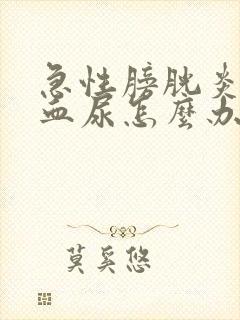 急性膀胱炎
血尿怎麼办
莫奚悠